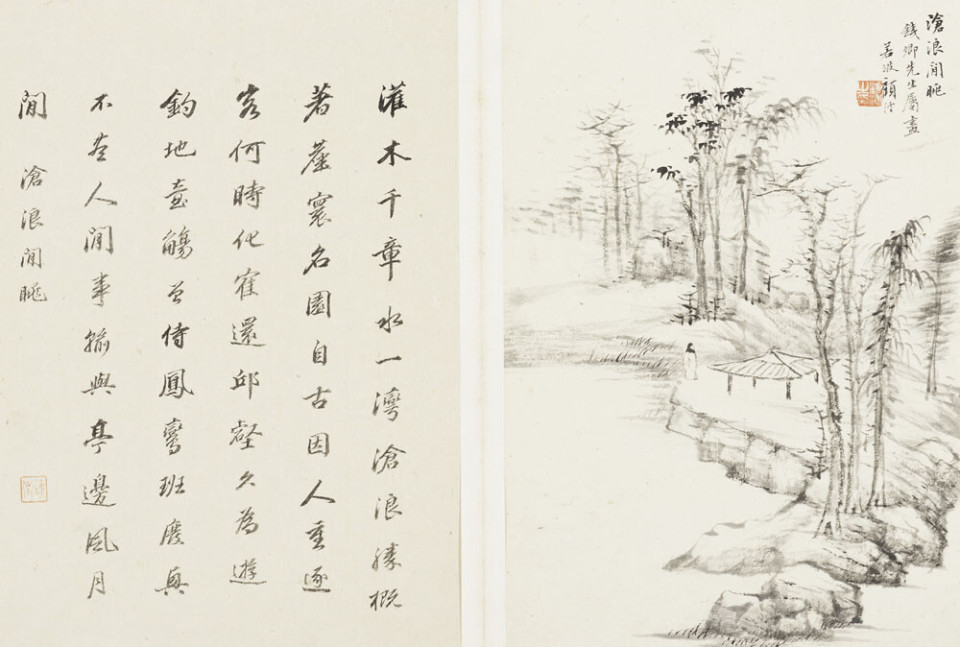 滄浪閒眺
卿先生屬畫
若波顧澐
灌木千章水一灣滄浪勝概
著塵寰名園自古因人重逐
客何時化寉還邱壑久為遊
釣地壺觴曾侍鳳鸞班
不人間事輸與亭邊風月
閒 滄浪閒眺